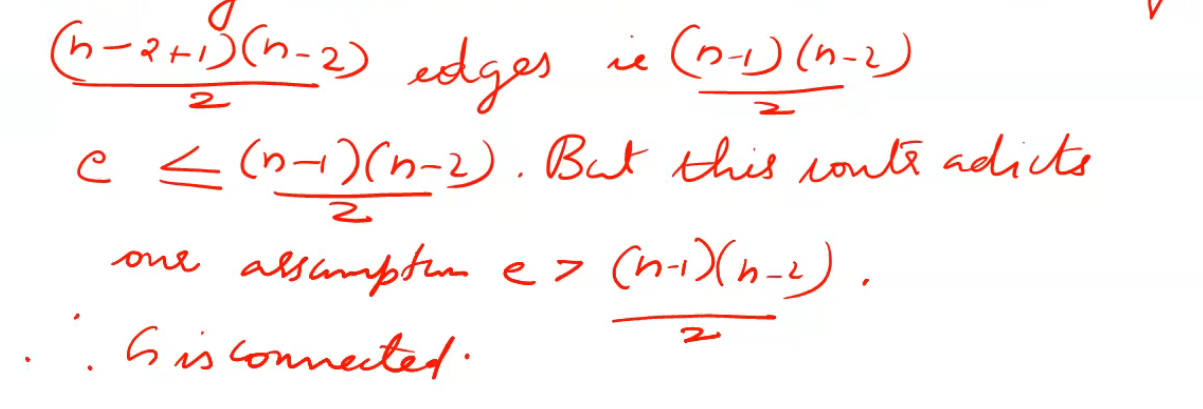 (n-2+1)(n-2)/2 edges ie (n-1)(n-2)/2
e ≤ (n-1)(n-2)/2. But this contradicts
our assumption e > (n-1)(n-2)/2.
∴ G is connected.